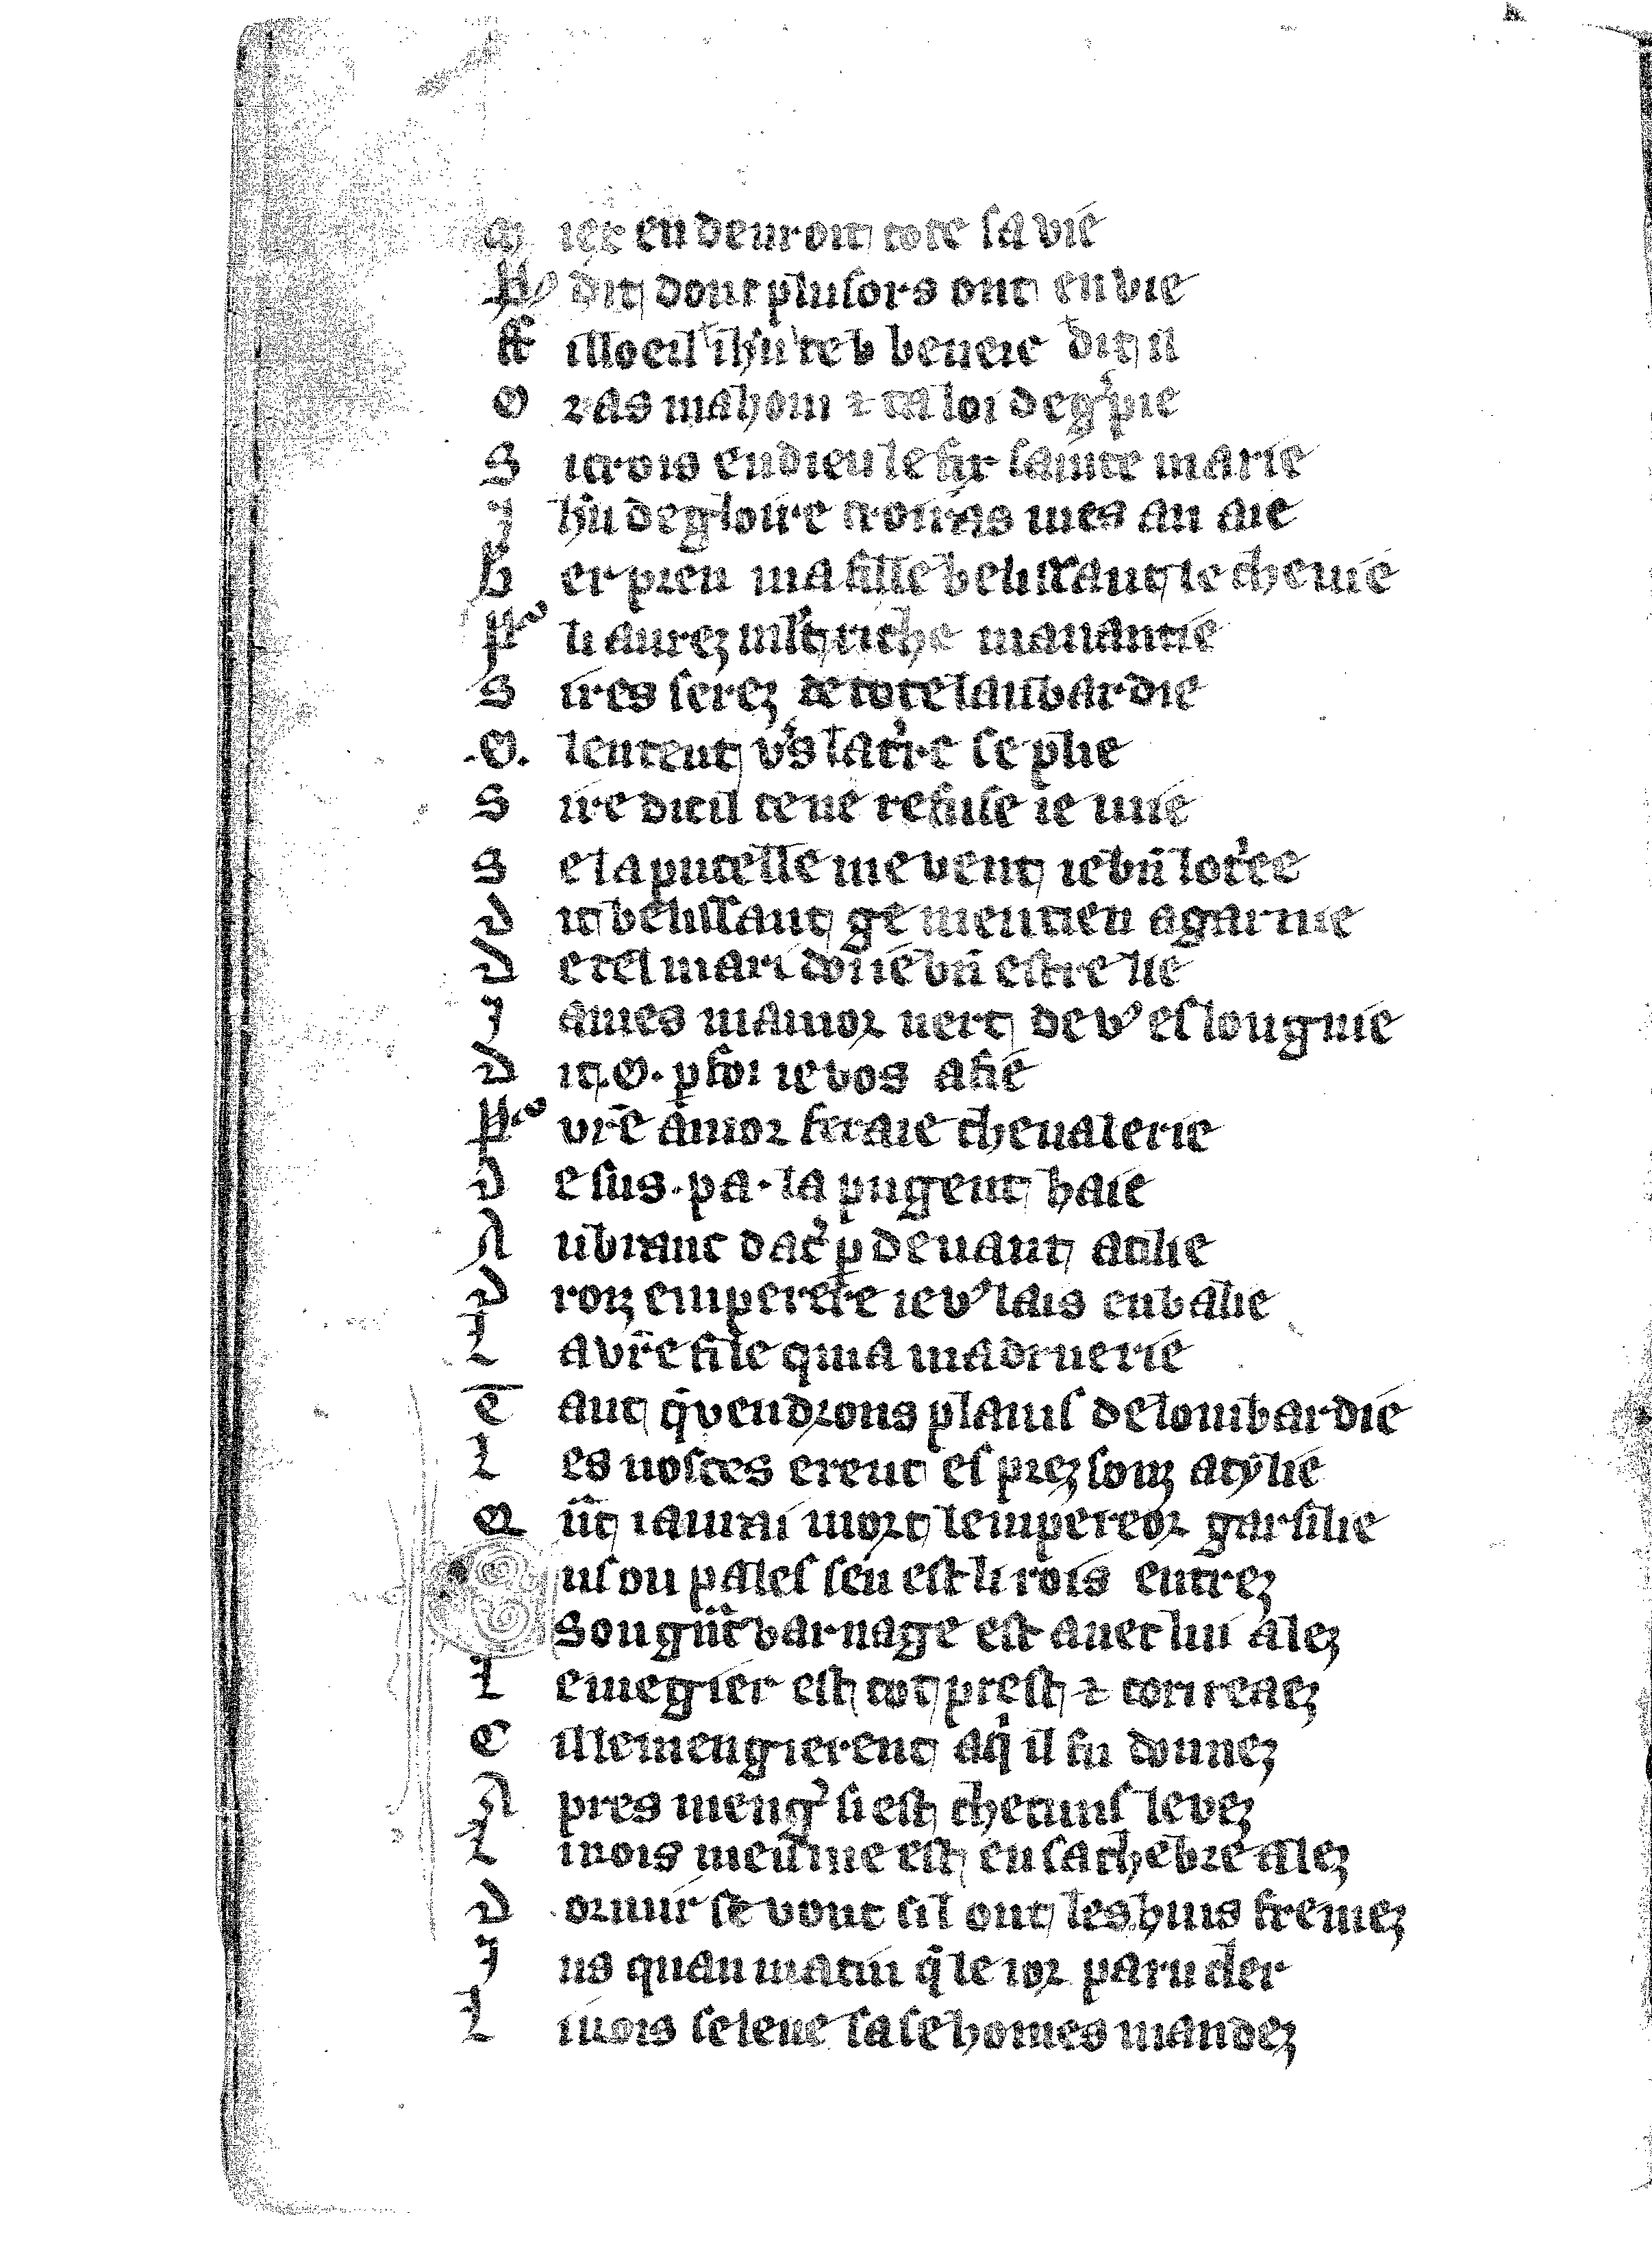 M iex en deuroit tote sa vie
P⁹ dit dont plusors ont enuie
ff illo cil ihũ te b beneie dit il
O ras mahom ⁊ ta loi deg̾pie
S i crois en dieu le fix sainte marie
J hũ de gloire croiras mes an aie
b er pren ma fille belissant le cheuie
P⁹ li aurez mlt riche manantie
S ires serez de tote lanbardie
.O. lentent v̾s la t̾re se plie
S ire dit il ce ne refuse ie mie
S e la pucelle me vent ie bñ lot̾ee
D it belissant ge mentien a garnie
D e tel mari doi ie bñ estre lie
J ames mamor nert de v⁹ eslougnie
D it .O. p foi ie vos afie
P⁹ vr̃e amor feraie cheualerie
D e sus .pa. la pugent haie
A u branc dac̾ p deuant atilie
D roiz emperere ie v⁹ lais en balie
L a vr̃e fille qui a ma druerie
T ant q̃ vendrons plains de lombardie
L es nosces erent es prez souz atylie
Q ñt iaurai mort lempereor garsilie
us ou pales sen est li rois entrez
Son gñt barnage est auec lui alez
L e megier est tot prest ⁊ conreaez
C il le mengierent a q̃ il fu donnez
A pres meng̾ si est checuns levez
L i rois meisme est en sa chebre alez
D ormir se vont sil ont les huis fremez
J us quau matin q̃ le ior paru cler
L i rois se leue sa se homes mandez